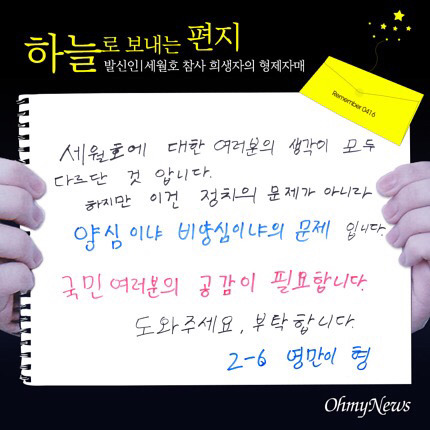 하늘로 보내는 편지
발신인|세월호 참사 희생자의 형제자매
Remember 0416
세월호에 대한 여러분의 생각이 모두
다르단 것 압니다.
하지만 이건 정치의 문제가 아니라
양심이냐 비양심이냐의 문제 입니다.
국민여러분의 공감이 필요합니다.
도와주세요, 부탁합니다.
2-6 영만이 형
OhmyNews